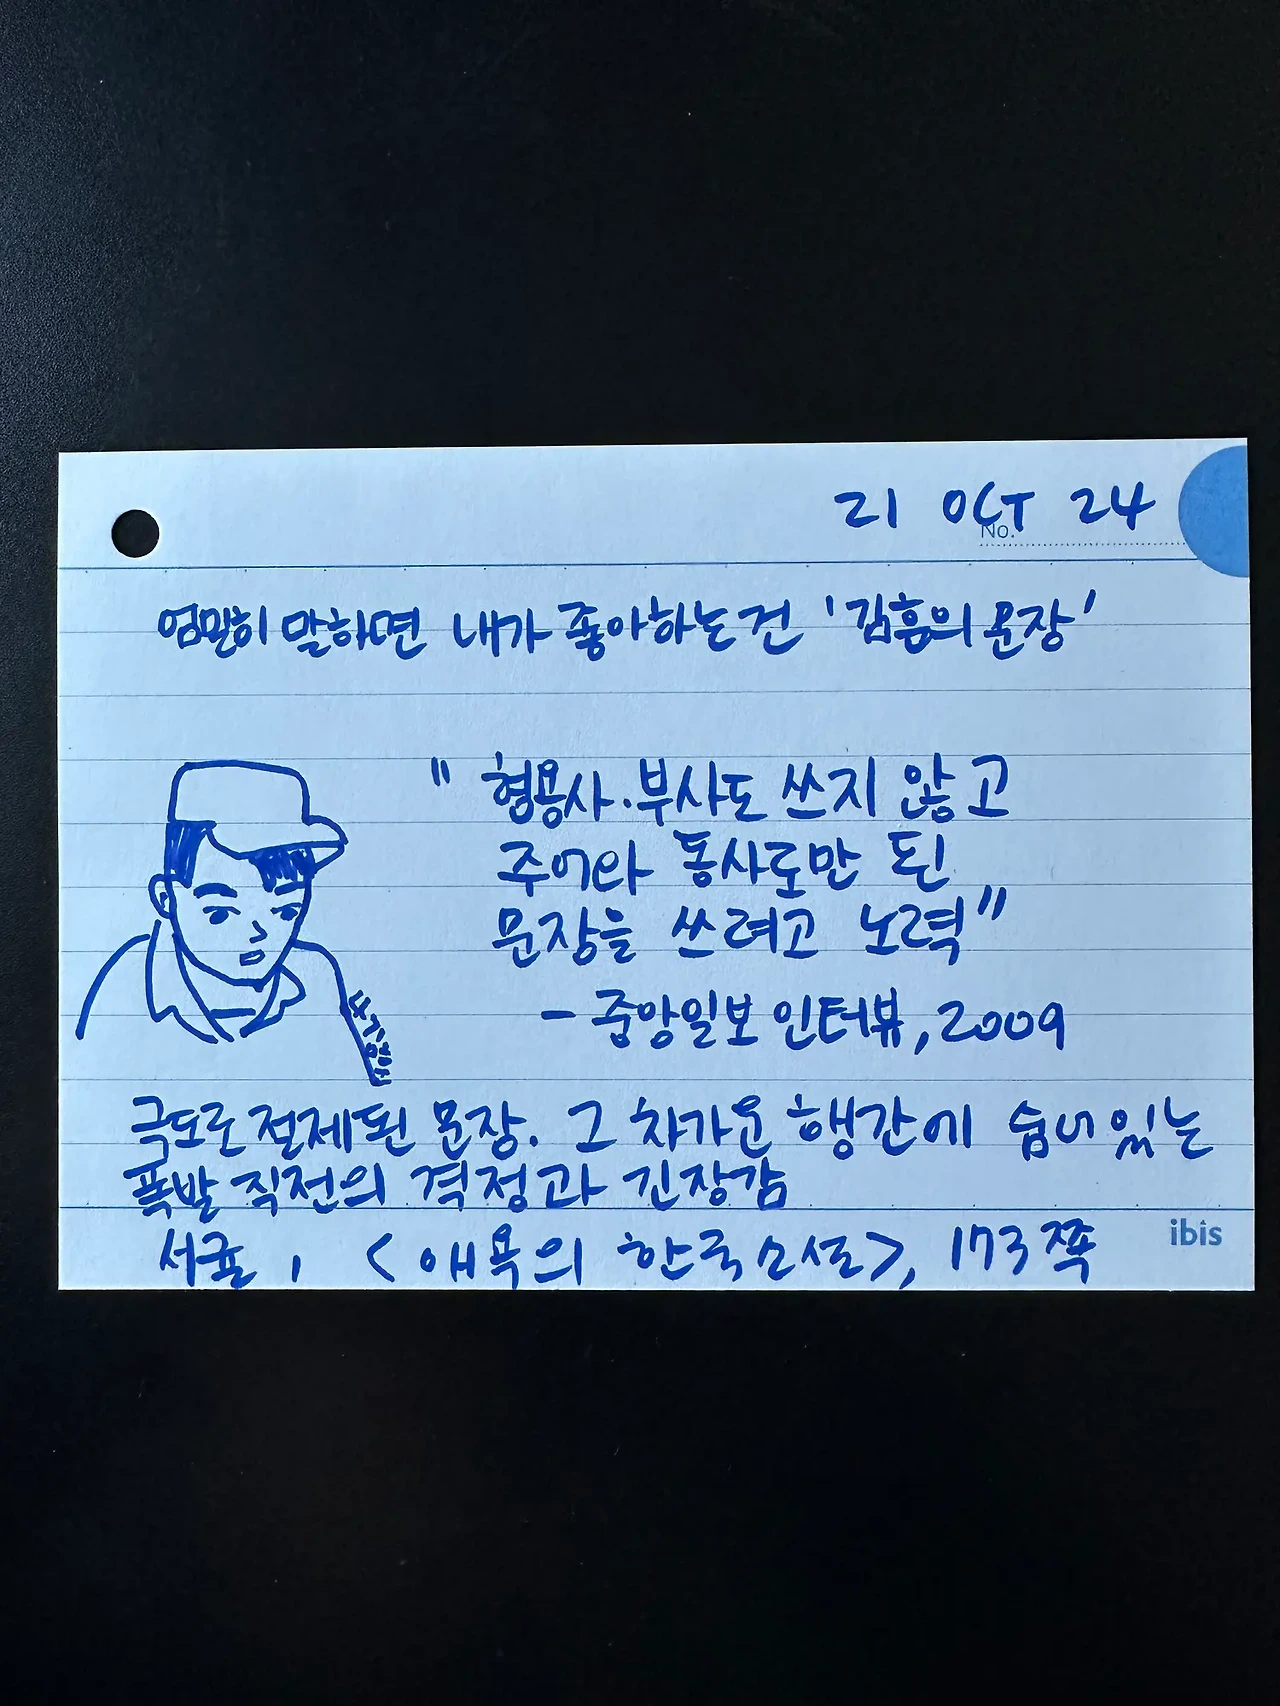 21 OCT 24
No.
엄밀히 말하면 내가 좋아하는건 '김훈의 문장'
" 형용사·부사도 쓰지 않고
주어와 동사로만 된
문장을 쓰려고 노력"
- 중앙일보 인터뷰, 2009
극도로 절제된 문장. 그 차가운 행간에 숨어있는
폭발 직전의 격정과 긴장감
서귤, <애욕의 한국소설>, 173쪽
ibis